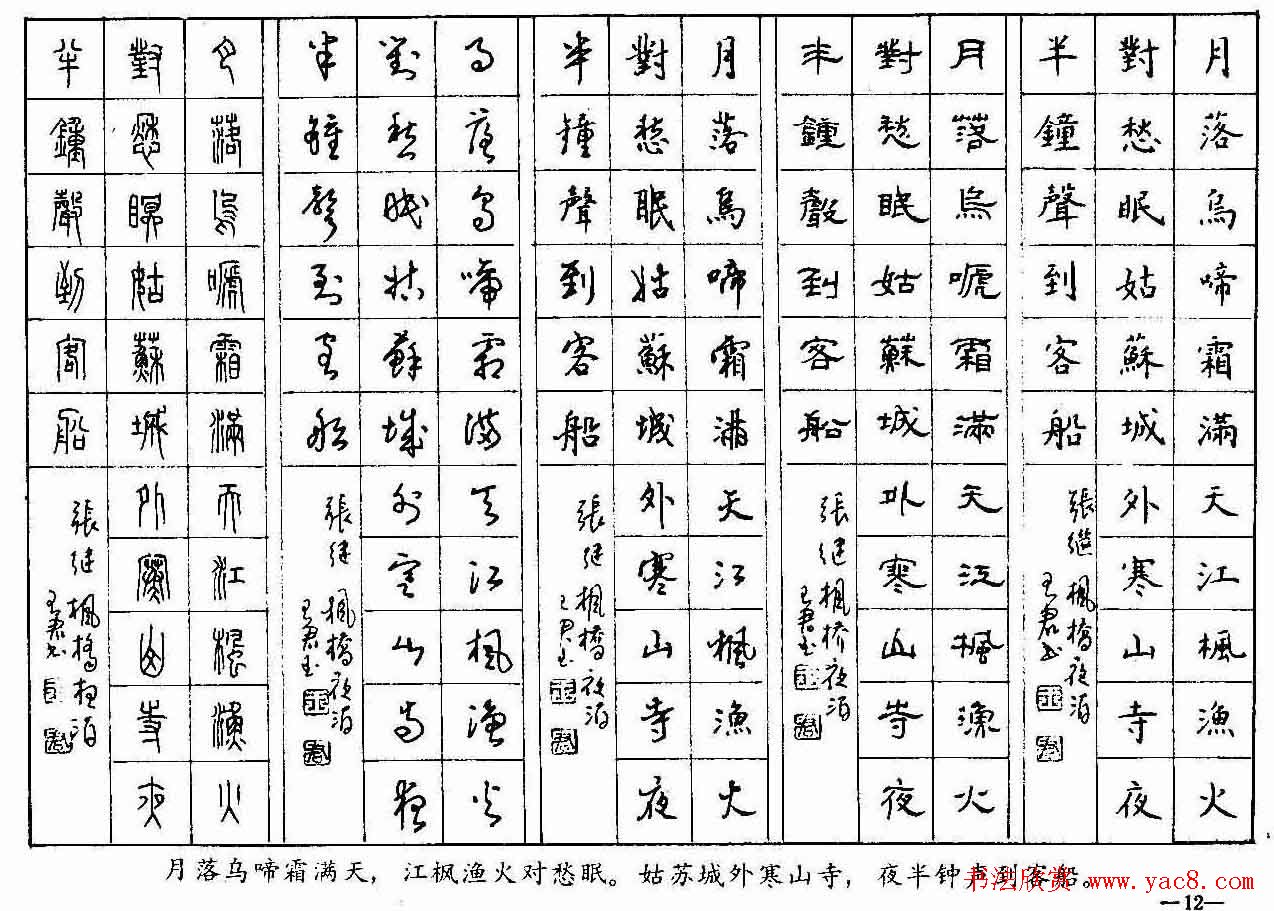 月落烏啼霜滿天江楓漁火
對愁眠姑蘇城外寒山寺夜
半鐘聲到客船
張继 楓橋夜泊
王君书
月落烏啼霜滿天江楓漁火
對愁眠姑蘇城外寒山寺夜
半鐘聲到客船
張继 楓桥夜泊
王君书
月落烏啼霜滿天江楓漁火
對愁眠姑蘇城外寒山寺夜
半鐘聲到客船
張继 楓橋夜泊
王君书
月落烏啼霜滿天江楓漁火
對愁眠姑蘇城外寒山寺夜
半鐘聲到客船
張继 楓橋夜泊
王君书
月落烏啼霜滿天江楓漁火
對愁眠姑蘇城外寒山寺夜
半鐘聲到客船
張继 楓橋夜泊
王君书
月落乌啼霜满天，江枫渔火对愁眠。姑苏城外寒山寺，夜半钟声到客船。
书法欣赏 www.yac8.com
—12—